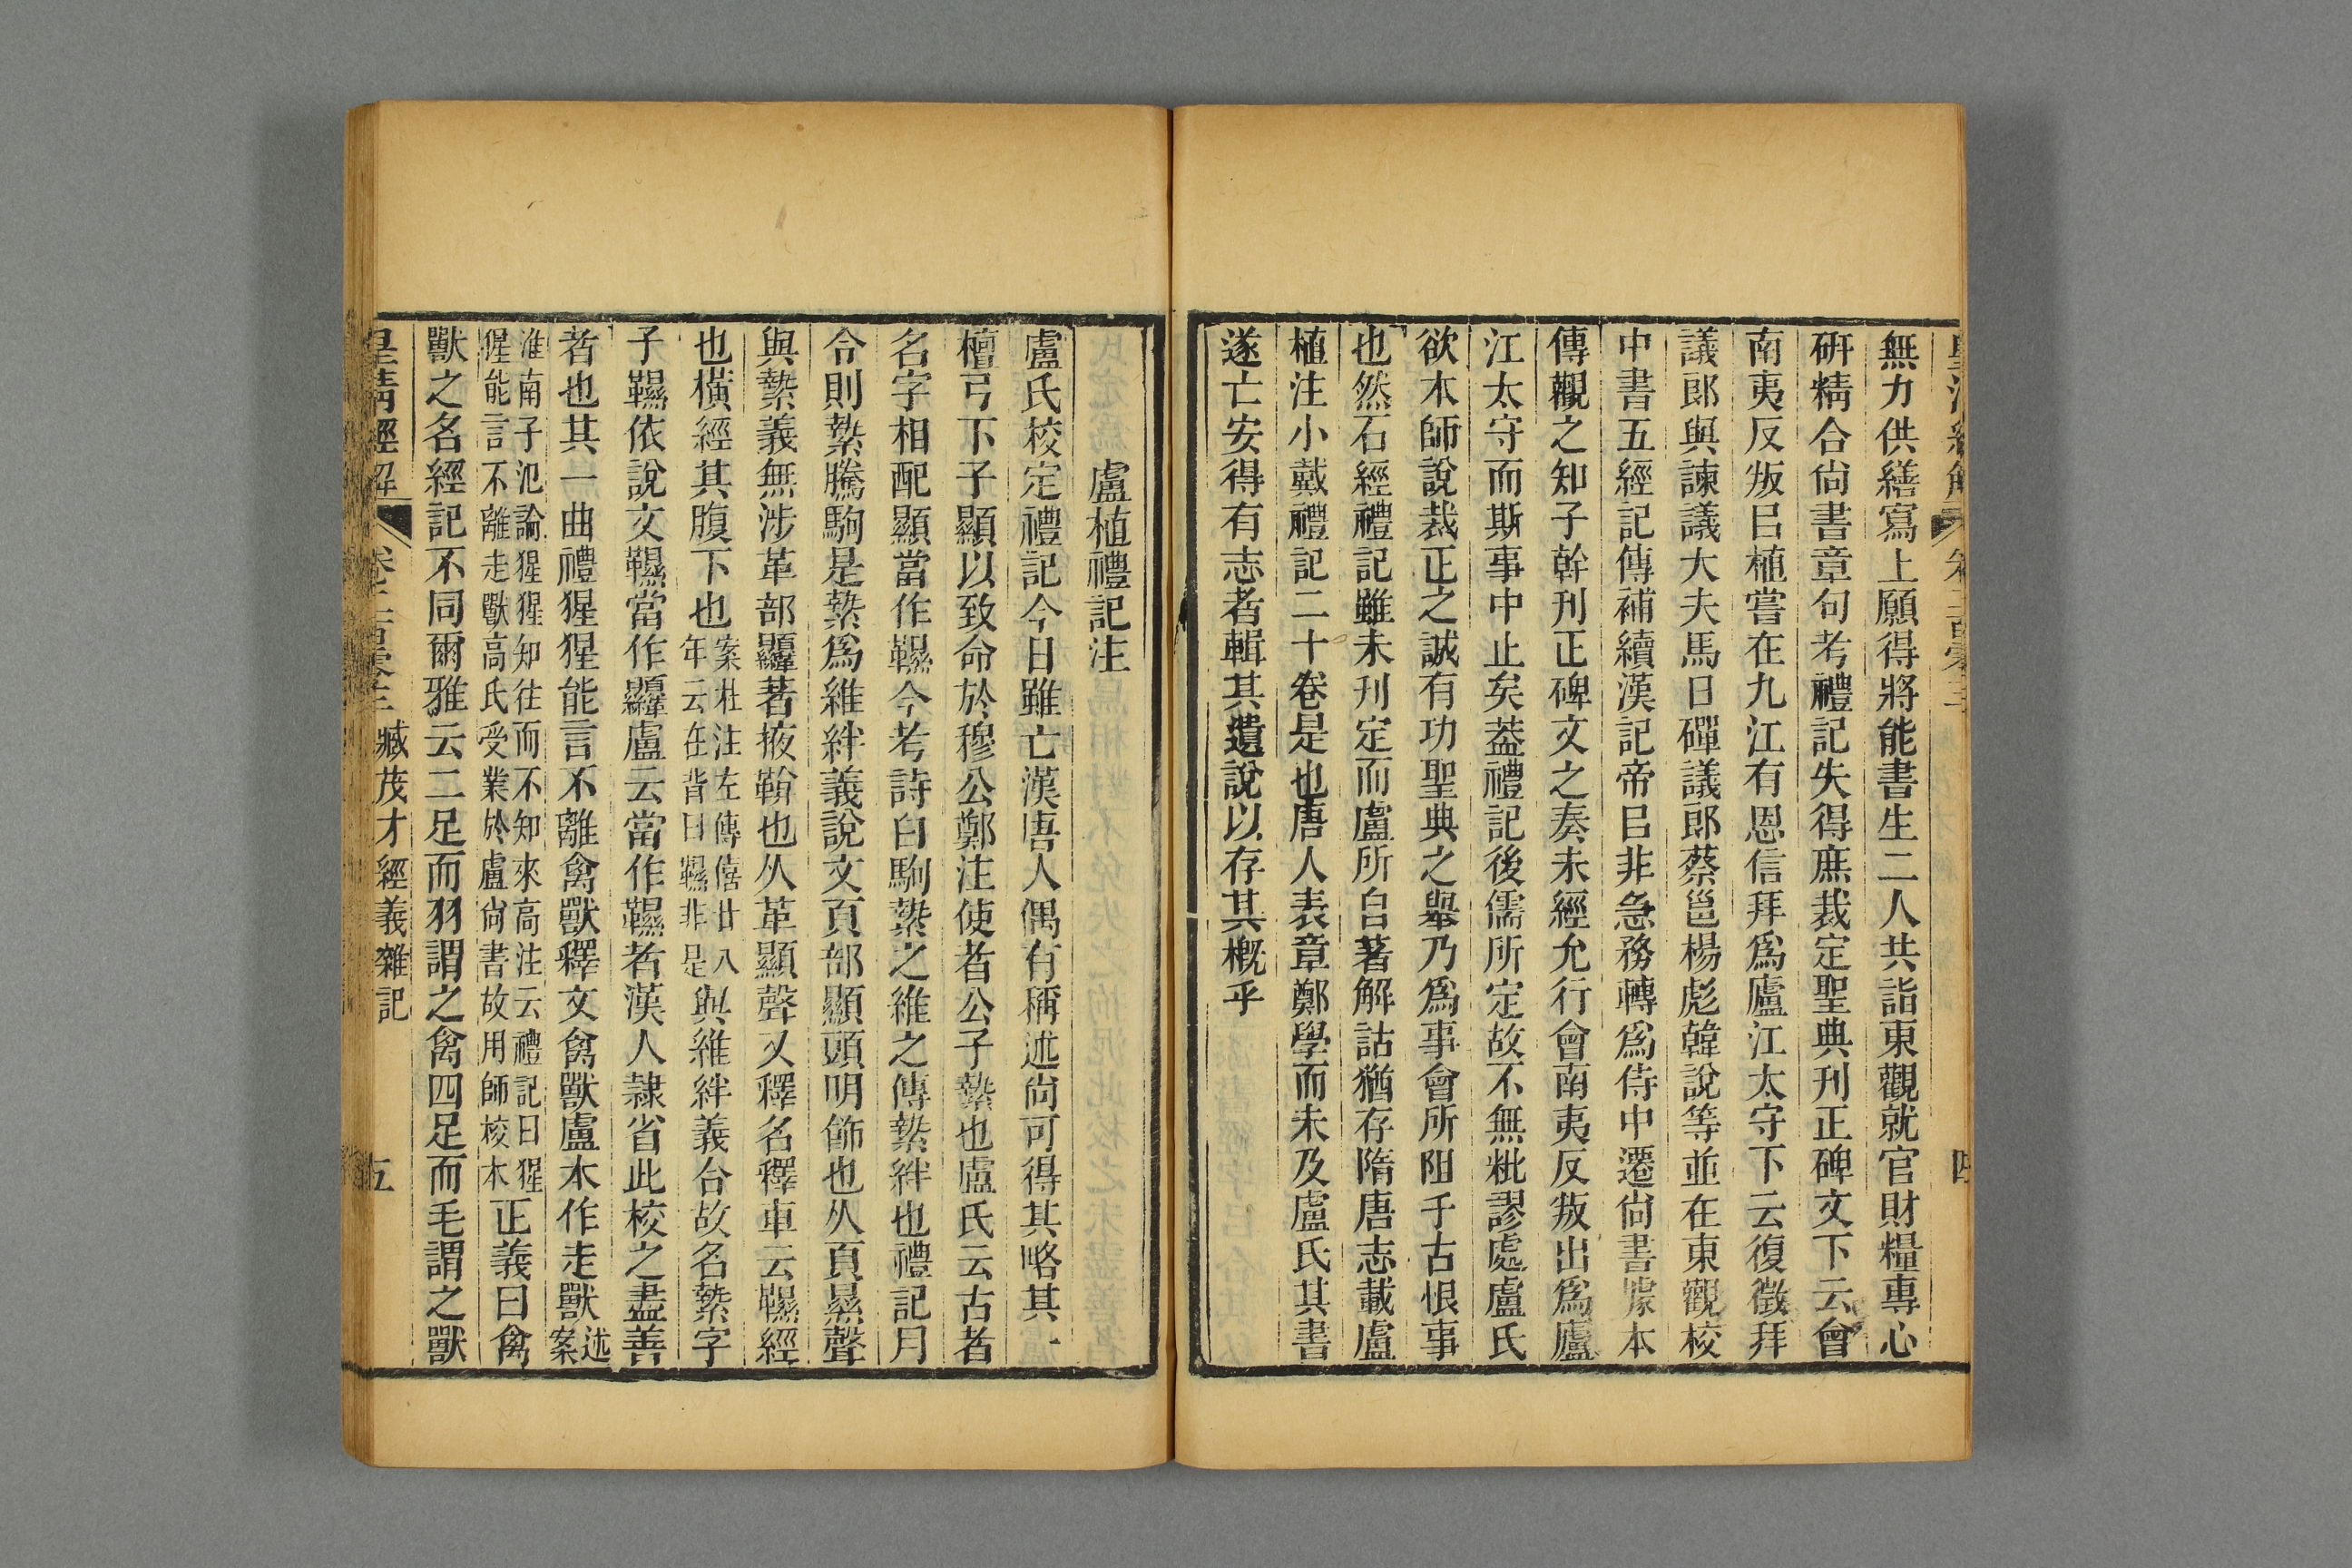 無力供繕寫上願得將能書生二人共詣東觀就官財糧專心
硏精合尙書章句考禮記失得庶裁定聖典刊正碑文下云會
南夷反叛㠯植嘗在九江有恩信拜爲廬江太守下云復徵拜
議郎與諫議大夫馬日磾議郎蔡邕楊彪韓說等並在東觀校
中書五經記傳補續漢記帝㠯非急務轉爲侍中遷尙書據本
傳觀之知子幹刊正碑文之奏未經允行會南夷反叛出爲廬
江太守而斯事中止矣葢禮記後儒所定故不無粃謬處盧氏
欲本師說裁正之誠有功聖典之舉乃爲事會所阻千古恨事
也然石經禮記雖未刊定而盧所自著解詁猶存隋唐志載盧
植注小戴禮記二十卷是也唐人表章鄭學而未及盧氏其書
遂亡安得有志者輯其遺說以存其概乎
盧植禮記注
盧氏校定禮記今日雖亡漢唐人偶有稱述尙可得其略其一
檀弓下子顯以致命於穆公鄭注使者公子縶也盧氏云古者
名字相配顯當作韅今考詩白駒縶之維之傳縶絆也禮記月
令則縶騰駒是縶爲維絆義說文頁部顯頭明飾也从頁㬎聲
與縶義無涉革部韅著掖鞥也从革顯聲又釋名釋車云韅經
也橫經其腹下也案杜注左傳僖廿八
年云在背曰韅非是與維絆義合故名縶字
子韅依說文韅當作韅盧云當作韅者漢人隷省此校之盡善
者也其一曲禮猩猩能言不離禽獸釋文禽獸盧本作走獸述
案
淮南子氾論猩猩知往而不知來高注云禮記曰猩
猩能言不離走獸高氏受業於盧尙書故用師校本正義曰禽
獸之名經記不同爾雅云二足而羽謂之禽四足而毛謂之獸
皇淸經解 臧茂才經義雜記 五